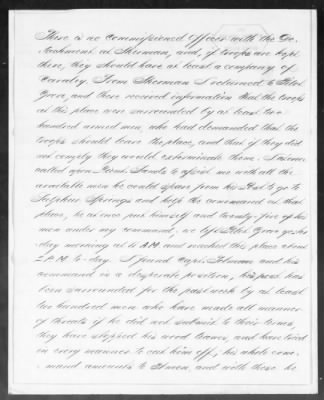 There is no commissioned Officer with the De-
tachment at Sherman, and, if troops are kept
there, they should have at least a company of
Cavalry. From Sherman I returned to Pilot
Grove, and there received information that the troops
at this place were surrounded by at least two
hundred armed men, who had demanded that the
troops should leave the place, and that if they did
not comply they would exterminate them. I
called upon Lieut. Sands to assist me with all the
available men he could spare from his Post to go to
Sulphur Springs and help the command at that
place, he at once put himself and twenty-five of his
men under my command, we left Pilot Grove yester-
day morning at 10 A.M. and reached this place about
2 P.M. to-day. I found Capt. Tolman and his
command in a desperate position, his post has
been surrounded for the past week by at least
two hundred men who have made all manner
of threats if he did not submit to their terms,
they have stopped his wood trains, and have tried
in every manner to cut him off, his whole com-
mand amounts to men, and with these he